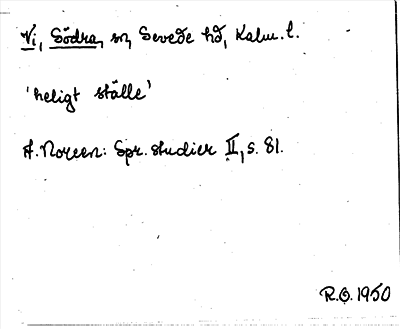 Vi, Södra, sn, Sevede hd, Kalm. l.
'heligt ställe'
A. Noreen: Spr. studier II, s. 81.
R.O. 1950